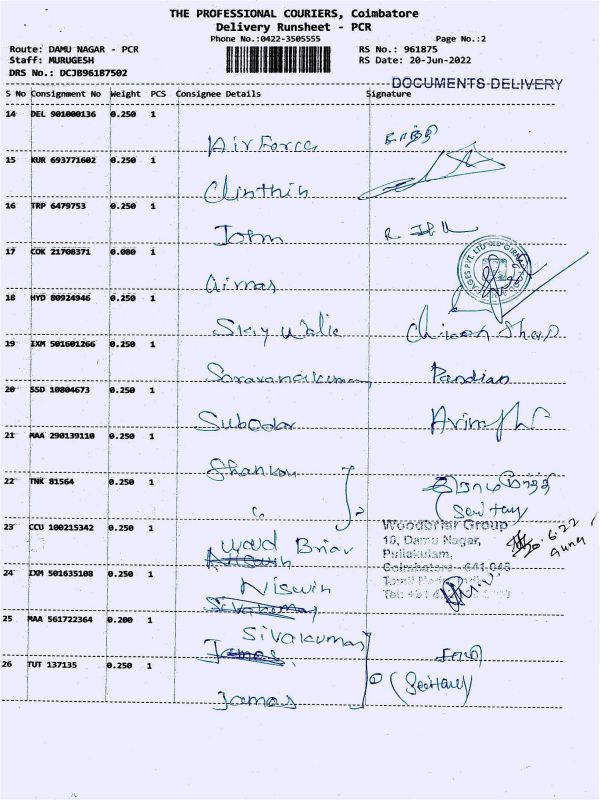 THE PROFESSIONAL COURIERS, Coimbatore
Delivery Runsheet - PCR
Phone No.:0422-3505555 Page No.:2
Route: DAMU NAGAR - PCR RS No.: 961875
Staff: MURUGESH RS Date: 20-Jun-2022
DRS No.: DCJB96187502
DOCUMENTS DELIVERY
S No Consignment No Weight PCS Consignee Details Signature
14 DEL 901000136 0.250 1
Air Force
15 KUR 693771602 0.250 1
Clinthin
16 TRP 6479753 0.250 1
John
17 COK 21708371 0.080 1
Airmas
18 HYD 80924946 0.250 1
19 IXM 501601266 0.250 1
Saravanakumar Pandian
20 SSD 10804673 0.250 1
Subodar
21 MAA 290139110 0.250 1
22 TNK 81564 0.250 1
23 CCU 100215342 0.250 1
Woodbriar Group
10, Damu Nagar,
Puliakulam,
Coimbatore - 641 045
Briar
24 IXM 501635108 0.250 1
Niswin
Sivakumar
25 MAA 561722364 0.200 1
Sivakumar
James
26 TUT 137135 0.250 1
James